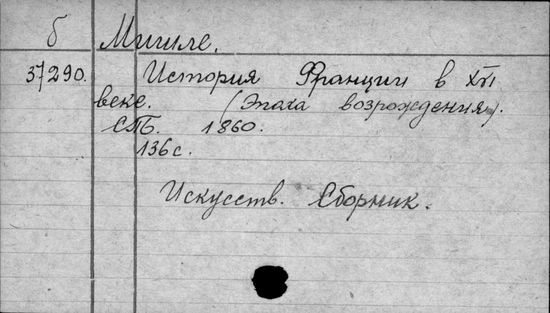 б Мишле.
37290. История Франции в XVI
веке. (Эпоха возрождения).
СПБ. 1860.
136 с.
Искусств. Сборник.